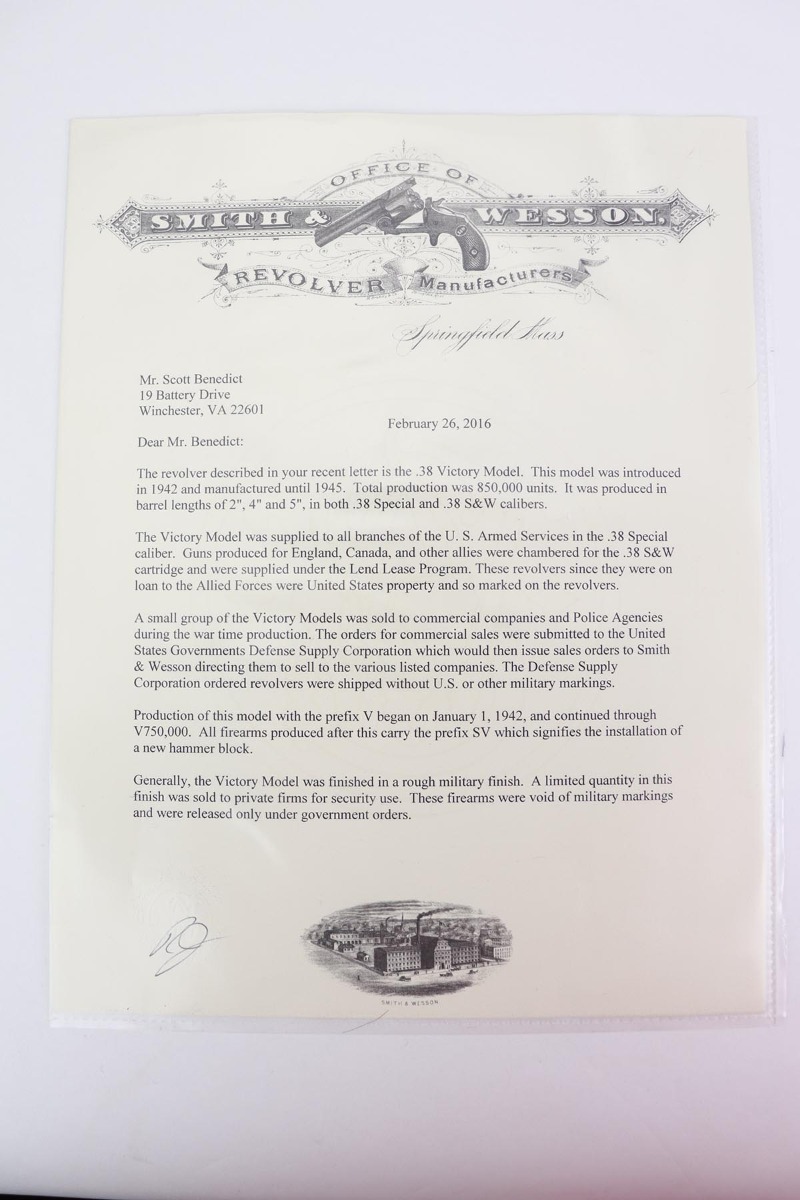 OFFICE OF
SMITH & WESSON.
REVOLVER Manufacturers
Springfield Mass
Mr. Scott Benedict
19 Battery Drive
Winchester, VA 22601
February 26, 2016
Dear Mr. Benedict:
The revolver described in your recent letter is the .38 Victory Model. This model was introduced
in 1942 and manufactured until 1945. Total production was 850,000 units. It was produced in
barrel lengths of 2", 4" and 5", in both .38 Special and .38 S&W calibers.
The Victory Model was supplied to all branches of the U. S. Armed Services in the .38 Special
caliber. Guns produced for England, Canada, and other allies were chambered for the .38 S&W
cartridge and were supplied under the Lend Lease Program. These revolvers since they were on
loan to the Allied Forces were United States property and so marked on the revolvers.
A small group of the Victory Models was sold to commercial companies and Police Agencies
during the war time production. The orders for commercial sales were submitted to the United
States Governments Defense Supply Corporation which would then issue sales orders to Smith
& Wesson directing them to sell to the various listed companies. The Defense Supply
Corporation ordered revolvers were shipped without U.S. or other military markings.
Production of this model with the prefix V began on January 1, 1942, and continued through
V750,000. All firearms produced after this carry the prefix SV which signifies the installation of
a new hammer block.
Generally, the Victory Model was finished in a rough military finish. A limited quantity in this
finish was sold to private firms for security use. These firearms were void of military markings
and were released only under government orders.
SMITH & WESSON